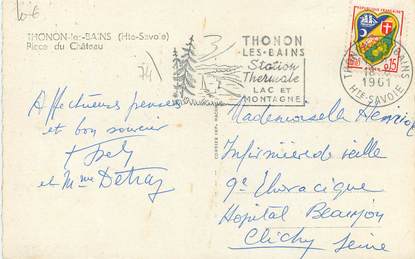 THONON-les-BAINS (Hte-Savoie)
Place du Château
Affectueuses pensées
et bon souvenir
et Mme Detraz
THONON
LES-BAINS
Station
Thermale
LAC ET
MONTAGNE
THONON-LES-BAINS
1961
HTE-SAVOIE
0,15
Mademoiselle
Infirmière de veille
9e thoracique
Hôpital Beaujon
Clichy Seine